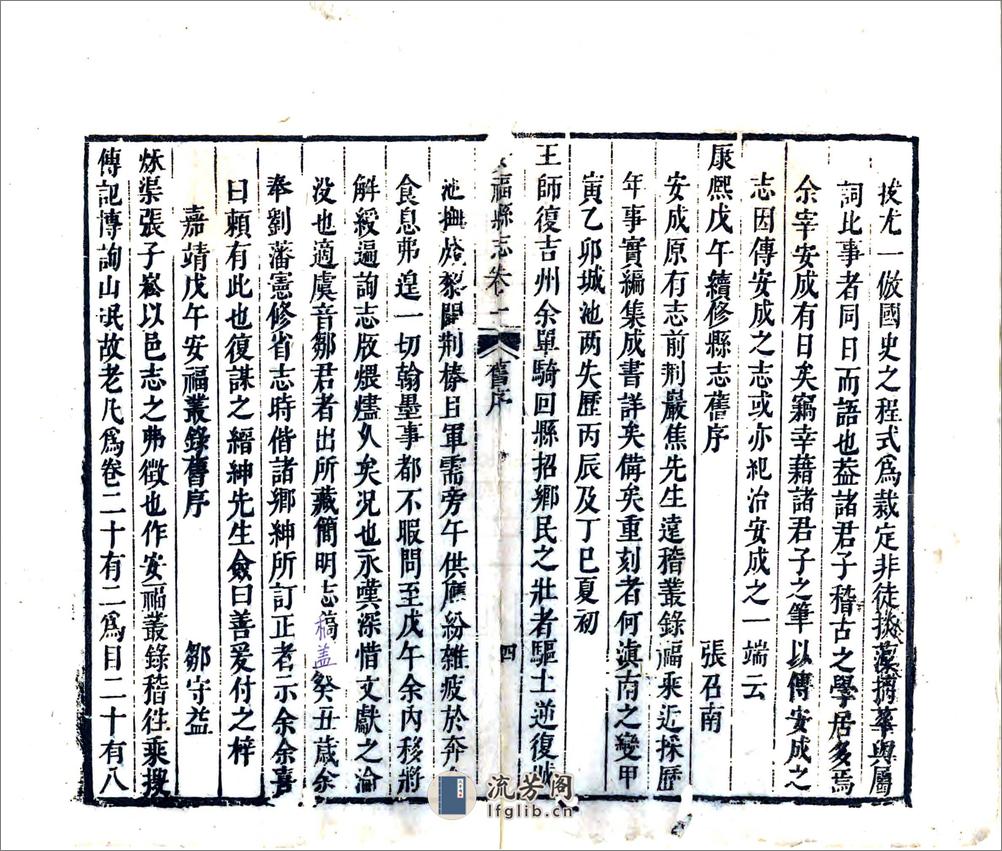 拔尤一倣國史之程式爲裁定非徒掞藻摛華與屬
詞比事者同日而語也葢諸君子稽古之學居多焉
余宰安成有日矣竊幸藉諸君子之筆以傳安成之
志因傳安成之志或亦紀治安成之一端云
康熙戊午續修縣志舊序
張召南
安成原有志前荆巖焦先生遠稽叢錄福乘近採歷
年事實編集成書詳矣備矣重刻者何滇南之變甲
寅乙卯城池兩失歷丙辰及丁巳夏初
王師復吉州余單騎回縣招鄉民之壯者驅土逆復城
福縣志卷 舊序 四
池撫於黎闢荆榛日軍需旁午供應紛雜疲於奔
食息弗遑一切翰墨事都不暇問至戊午余內移將
解綬遍詢志版煨燼久矣况也永嘆深惜文獻之淪
没也適虞音鄒君者出所藏簡明志稿盖癸丑歲余
奉劉藩憲修省志時偕諸鄉紳所訂正者示余余喜
曰頼有此也復謀之縉紳先生僉曰善爰付之梓
嘉靖戊午安福叢錄舊序
鄒守益
秌渠張子崧以邑志之弗徵也作安福叢錄稽往乘搜
傳記博詢山氓故老凡爲卷二十有二爲目二十有八
流芳阁
lfglib.cn